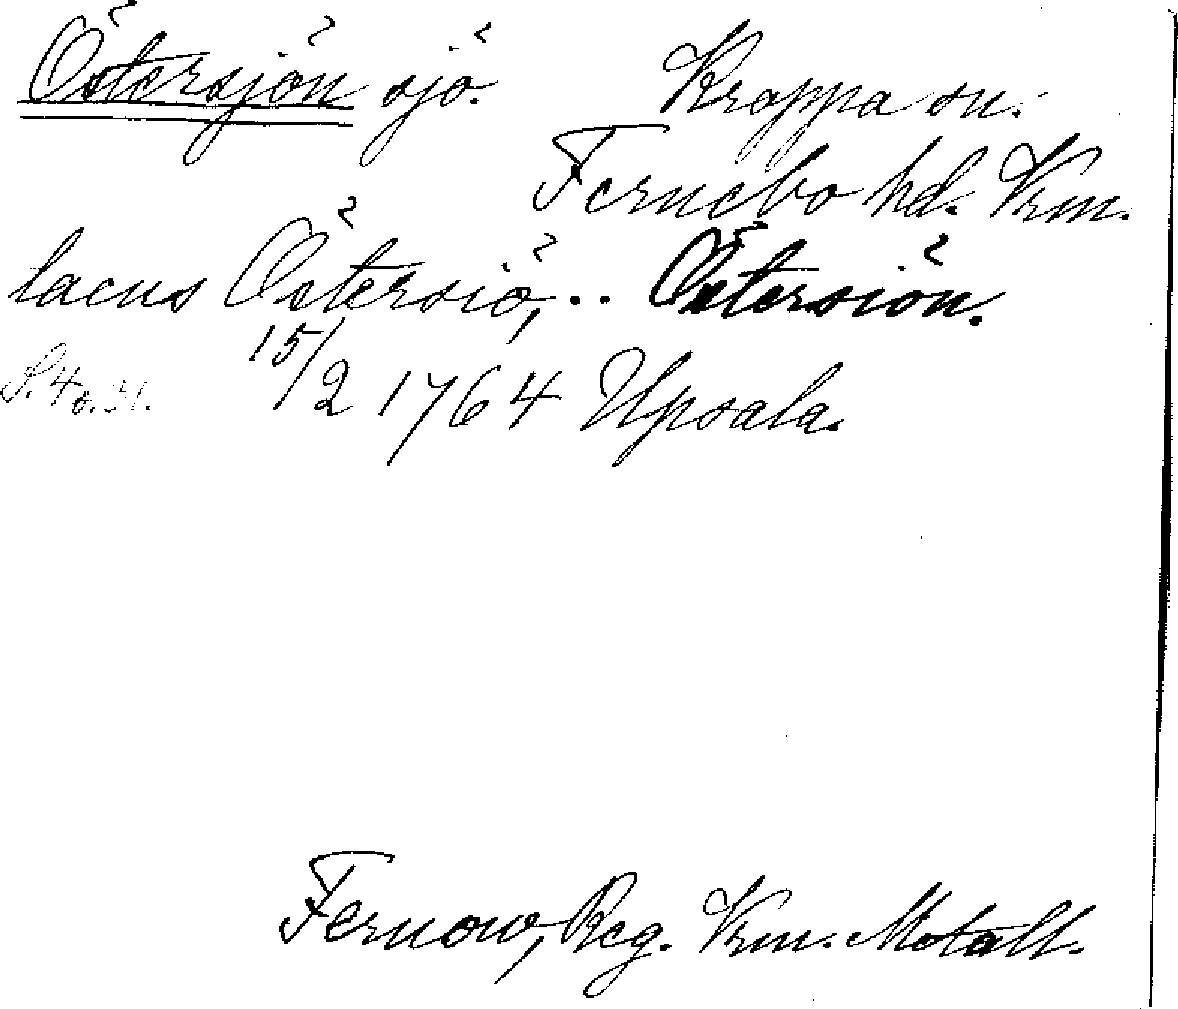 Östersjön sjö. Kroppa sn.
Fernebo hd. Vrm.
lacus Östersiö, .. Östersiön.
S. 4 o. 51. 15/2 1764 Upsala.
Fernow, Reg. Vrm. Motall.